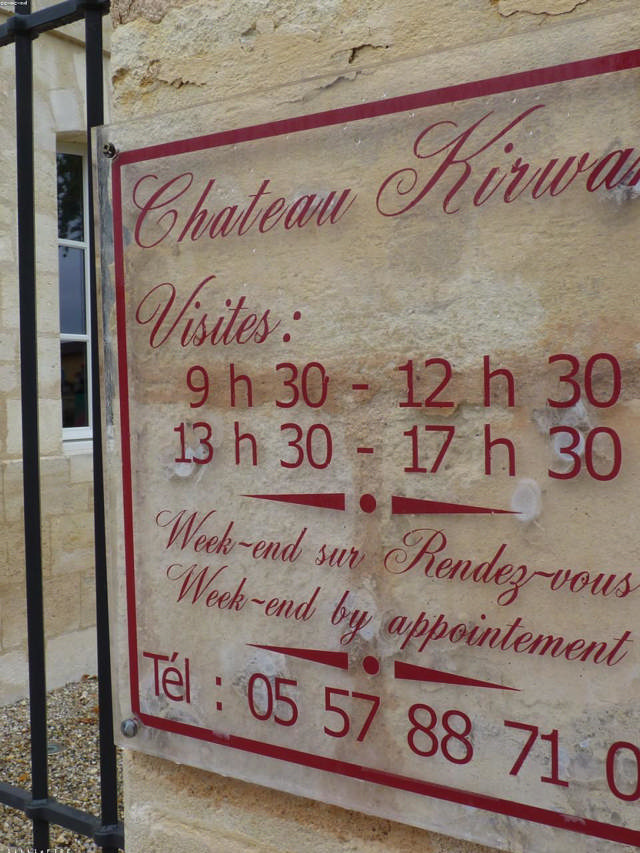 Chateau Kirwa
Visites :
9 h 30 - 12 h 30
13 h 30 - 17 h 30
Week~end sur Rendez~vous
Week~end by appointement
Tél : 05 57 88 71 0